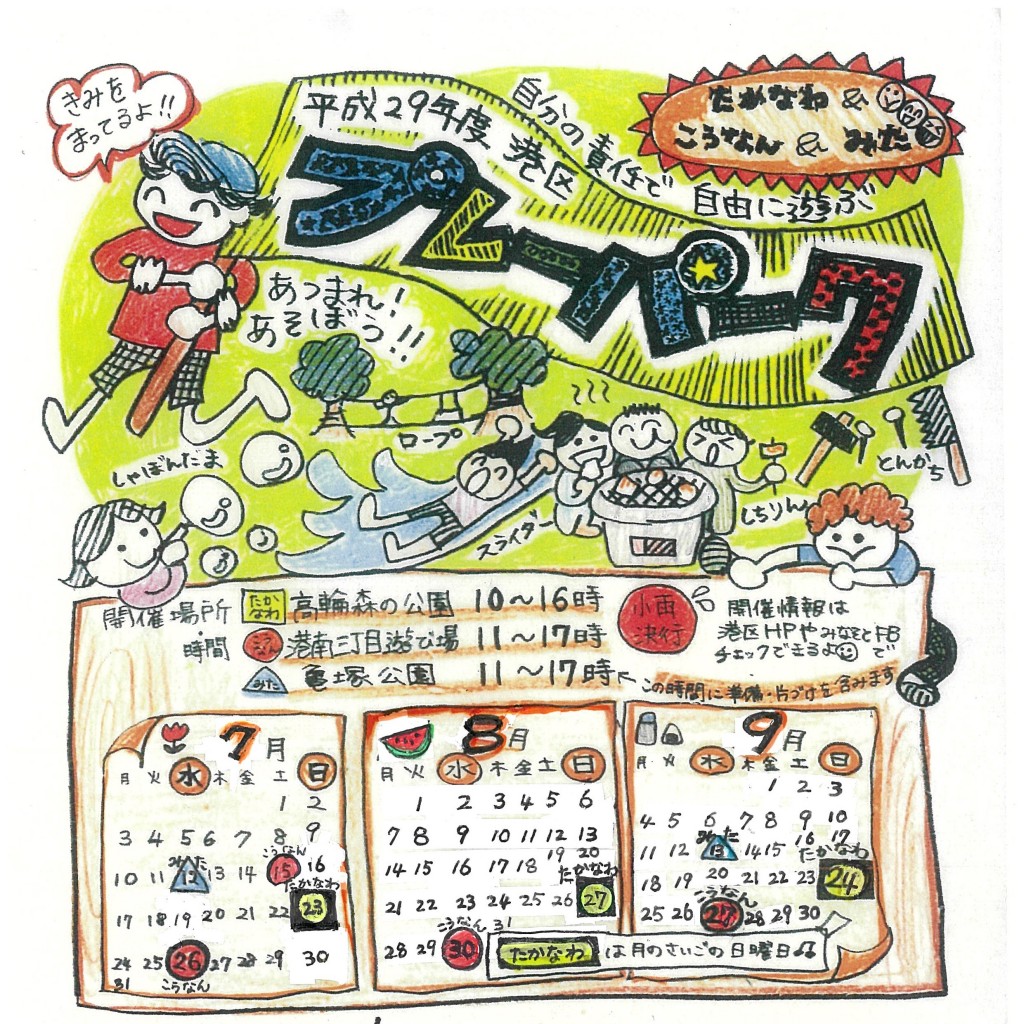 きみを
まってるよ!!
平成29年度 港区
自分の責任で
自由に遊ぶ
たかなわ &
こうなん & みた
プレーパーク
あつまれ!
あそぼう!!
ロープ
しゃぼんだま
スライダー
しちりん
とんかち
開催場所
・時間
たかなわ 高輪森の公園 10〜16時
こうなん 港南三丁目遊び場 11〜17時
みた 亀塚公園 11〜17時
この時間に準備・片づけを含みます
小雨
決行
開催情報は
港区HPやみなとFBで
チェックできるよ
7月
月 火 水 木 金 土 日
1 2
3 4 5 6 7 8 9
みた こうなん
10 11 12 13 14 15 16
たかなわ
17 18 19 20 21 22 23
24 25 26 27 28 29 30
31 こうなん
8月
月 火 水 木 金 土 日
1 2 3 4 5 6
7 8 9 10 11 12 13
14 15 16 17 18 19 20
たかなわ
21 22 23 24 25 26 27
こうなん
28 29 30 31
9月
月 火 水 木 金 土 日
1 2 3
4 5 6 7 8 9 10
みた
11 12 13 14 15 16 17
たかなわ
18 19 20 21 22 23 24
こうなん
25 26 27 28 29 30
たかなわ は月のさいごの日曜日♫